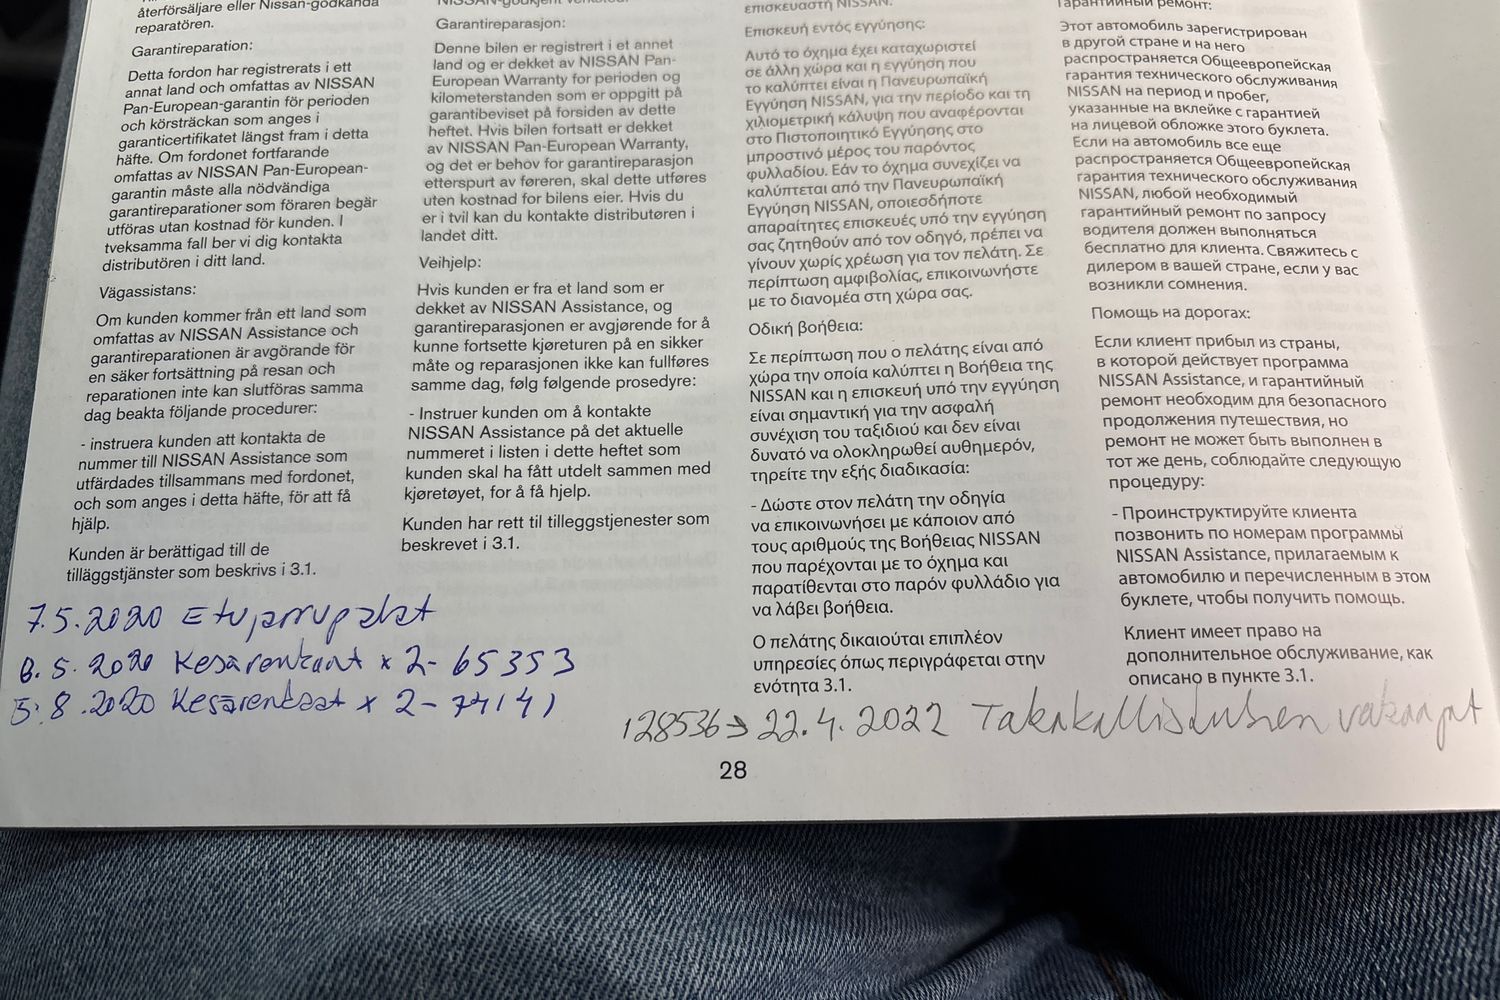 återförsäljare eller Nissan-godkända
reparatören.
Garantireparation:
Detta fordon har registrerats i ett
annat land och omfattas av NISSAN
Pan-European-garantin för perioden
och körsträckan som anges i
garanticertifikatet längst fram i detta
häfte. Om fordonet fortfarande
omfattas av NISSAN Pan-European-
garantin måste alla nödvändiga
garantireparationer som föraren begär
utföras utan kostnad för kunden. I
tveksamma fall ber vi dig kontakta
distributören i ditt land.
Vägassistans:
Om kunden kommer från ett land som
omfattas av NISSAN Assistance och
garantireparationen är avgörande för
en säker fortsättning på resan och
reparationen inte kan slutföras samma
dag beakta följande procedurer:
- instruera kunden att kontakta de
nummer till NISSAN Assistance som
utfärdades tillsammans med fordonet,
och som anges i detta häfte, för att få
hjälp.
Kunden är berättigad till de
tilläggstjänster som beskrivs i 3.1.
Garantireparasjon:
Denne bilen er registrert i et annet
land og er dekket av NISSAN Pan-
European Warranty for perioden og
kilometerstanden som er oppgitt på
garantibeviset på forsiden av dette
heftet. Hvis bilen fortsatt er dekket
av NISSAN Pan-European Warranty,
og det er behov for garantireparasjon
etterspurt av føreren, skal dette utføres
uten kostnad for bilens eier. Hvis du
er i tvil kan du kontakte distributøren i
landet ditt.
Veihjelp:
Hvis kunden er fra et land som er
dekket av NISSAN Assistance, og
garantireparasjonen er avgjørende for å
kunne fortsette kjøreturen på en sikker
måte og reparasjonen ikke kan fullføres
samme dag, følg følgende prosedyre:
- Instruer kunden om å kontakte
NISSAN Assistance på det aktuelle
nummeret i listen i dette heftet som
kunden skal ha fått utdelt sammen med
kjøretøyet, for å få hjelp.
Kunden har rett til tilleggstjenester som
beskrevet i 3.1.
επισκευαστή NISSAN.
Επισκευή εντός εγγύησης:
Αυτό το όχημα έχει καταχωριστεί
σε άλλη χώρα και η εγγύηση που
το καλύπτει είναι η Πανευρωπαϊκή
Εγγύηση NISSAN, για την περίοδο και τη
χιλιομετρική κάλυψη που αναφέρονται
στο Πιστοποιητικό Εγγύησης στο
μπροστινό μέρος του παρόντος
φυλλαδίου. Εάν το όχημα συνεχίζει να
καλύπτεται από την Πανευρωπαϊκή
Εγγύηση NISSAN, οποιεσδήποτε
απαραίτητες επισκευές υπό την εγγύηση
σας ζητηθούν από τον οδηγό, πρέπει να
γίνουν χωρίς χρέωση για τον πελάτη. Σε
περίπτωση αμφιβολίας, επικοινωνήστε
με το διανομέα στη χώρα σας.
Οδική βοήθεια:
Σε περίπτωση που ο πελάτης είναι από
χώρα την οποία καλύπτει η Βοήθεια της
NISSAN και η επισκευή υπό την εγγύηση
είναι σημαντική για την ασφαλή
συνέχιση του ταξιδιού και δεν είναι
δυνατό να ολοκληρωθεί αυθημερόν,
τηρείτε την εξής διαδικασία:
- Δώστε στον πελάτη την οδηγία
να επικοινωνήσει με κάποιον από
τους αριθμούς της Βοήθειας NISSAN
που παρέχονται με το όχημα και
παρατίθενται στο παρόν φυλλάδιο για
να λάβει βοήθεια.
Ο πελάτης δικαιούται επιπλέον
υπηρεσίες όπως περιγράφεται στην
ενότητα 3.1.
Гарантийный ремонт:
Этот автомобиль зарегистрирован
в другой стране и на него
распространяется Общеевропейская
гарантия технического обслуживания
NISSAN на период и пробег,
указанные на вклейке с гарантией
на лицевой обложке этого буклета.
Если на автомобиль все еще
распространяется Общеевропейская
гарантия технического обслуживания
NISSAN, любой необходимый
гарантийный ремонт по запросу
водителя должен выполняться
бесплатно для клиента. Свяжитесь с
дилером в вашей стране, если у вас
возникли сомнения.
Помощь на дорогах:
Если клиент прибыл из страны,
в которой действует программа
NISSAN Assistance, и гарантийный
ремонт необходим для безопасного
продолжения путешествия, но
ремонт не может быть выполнен в
тот же день, соблюдайте следующую
процедуру:
- Проинструктируйте клиента
позвонить по номерам программы
NISSAN Assistance, прилагаемым к
автомобилю и перечисленным в этом
буклете, чтобы получить помощь.
Клиент имеет право на
дополнительное обслуживание, как
описано в пункте 3.1.
7.5.2020 Etujarrupalat
8.5.2020 Kesärenkaat x 2- 65353
5.8.2020 Kesärenkaat x 2- 74141
128536→ 22.4.2022 Takakallistuksen vakaajat
28